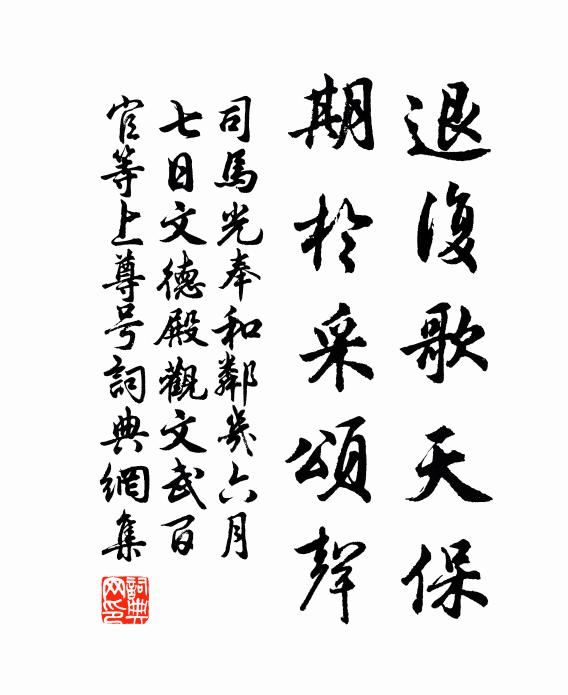 退復歌天保
期於采頌聲
司馬光奉和鄰幾六月
七日文德殿觀文武百
官等上尊号詞典網集
詞典
网印